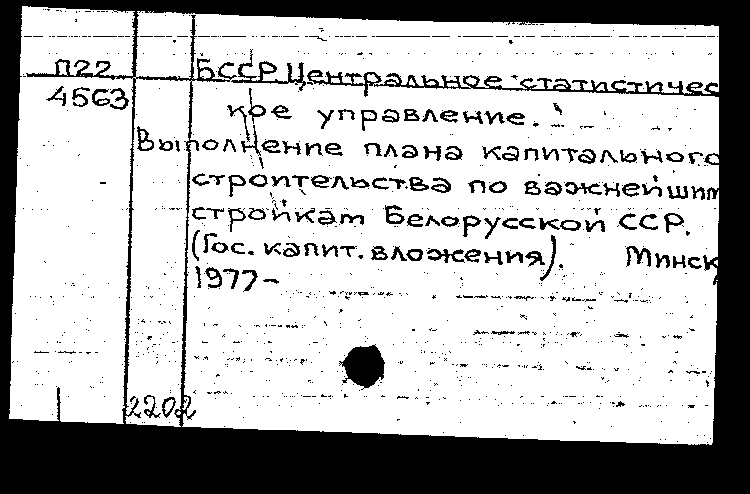 П22
4563
БССР Центральное статистичес
кое управление.
Выполнение плана капитального
строительства по важнейшим
стройкам Белорусской ССР.
(Гос. капит. вложения). Минск,
1977-
2202